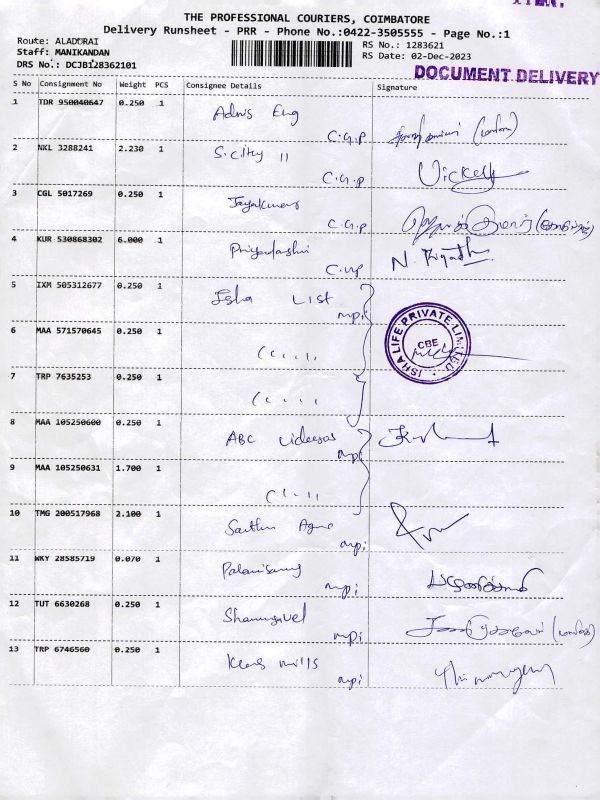 THE PROFESSIONAL COURIERS, COIMBATORE
Delivery Runsheet - PRR - Phone No.:0422-3505555 - Page No.:1
Route: ALADURAI
Staff: MANIKANDAN
DRS No.: DCJB128362101
RS No.: 1283621
RS Date: 02-Dec-2023
DOCUMENT DELIVERY
S No Consignment No Weight PCS Consignee Details Signature
1 TDR 950040647 0.250 1 Eng
C.G.P
2 NKL 3288241 2.230 1 S.city 11
C.G.P Vickey
3 CGL 5017269 0.250 1 Jayakumar
C.G.P
4 KUR 530868302 6.000 1 Priyadarshni
N.
5 IXM 505312677 0.250 1 Isha List
mpi
6 MAA 571570645 0.250 1
ISHA LIFE PRIVATE LIMITED
CBE
7 TRP 7635253 0.250 1
8 MAA 105250600 0.250 1 ABC
mpi
9 MAA 105250631 1.700 1
10 TMG 200517968 2.100 1
mpi
11 WKY 28585719 0.070 1 Palanisamy
mpi
12 TUT 6630268 0.250 1 Shanmugavel
mpi
13 TRP 6746560 0.250 1 mills
mpi